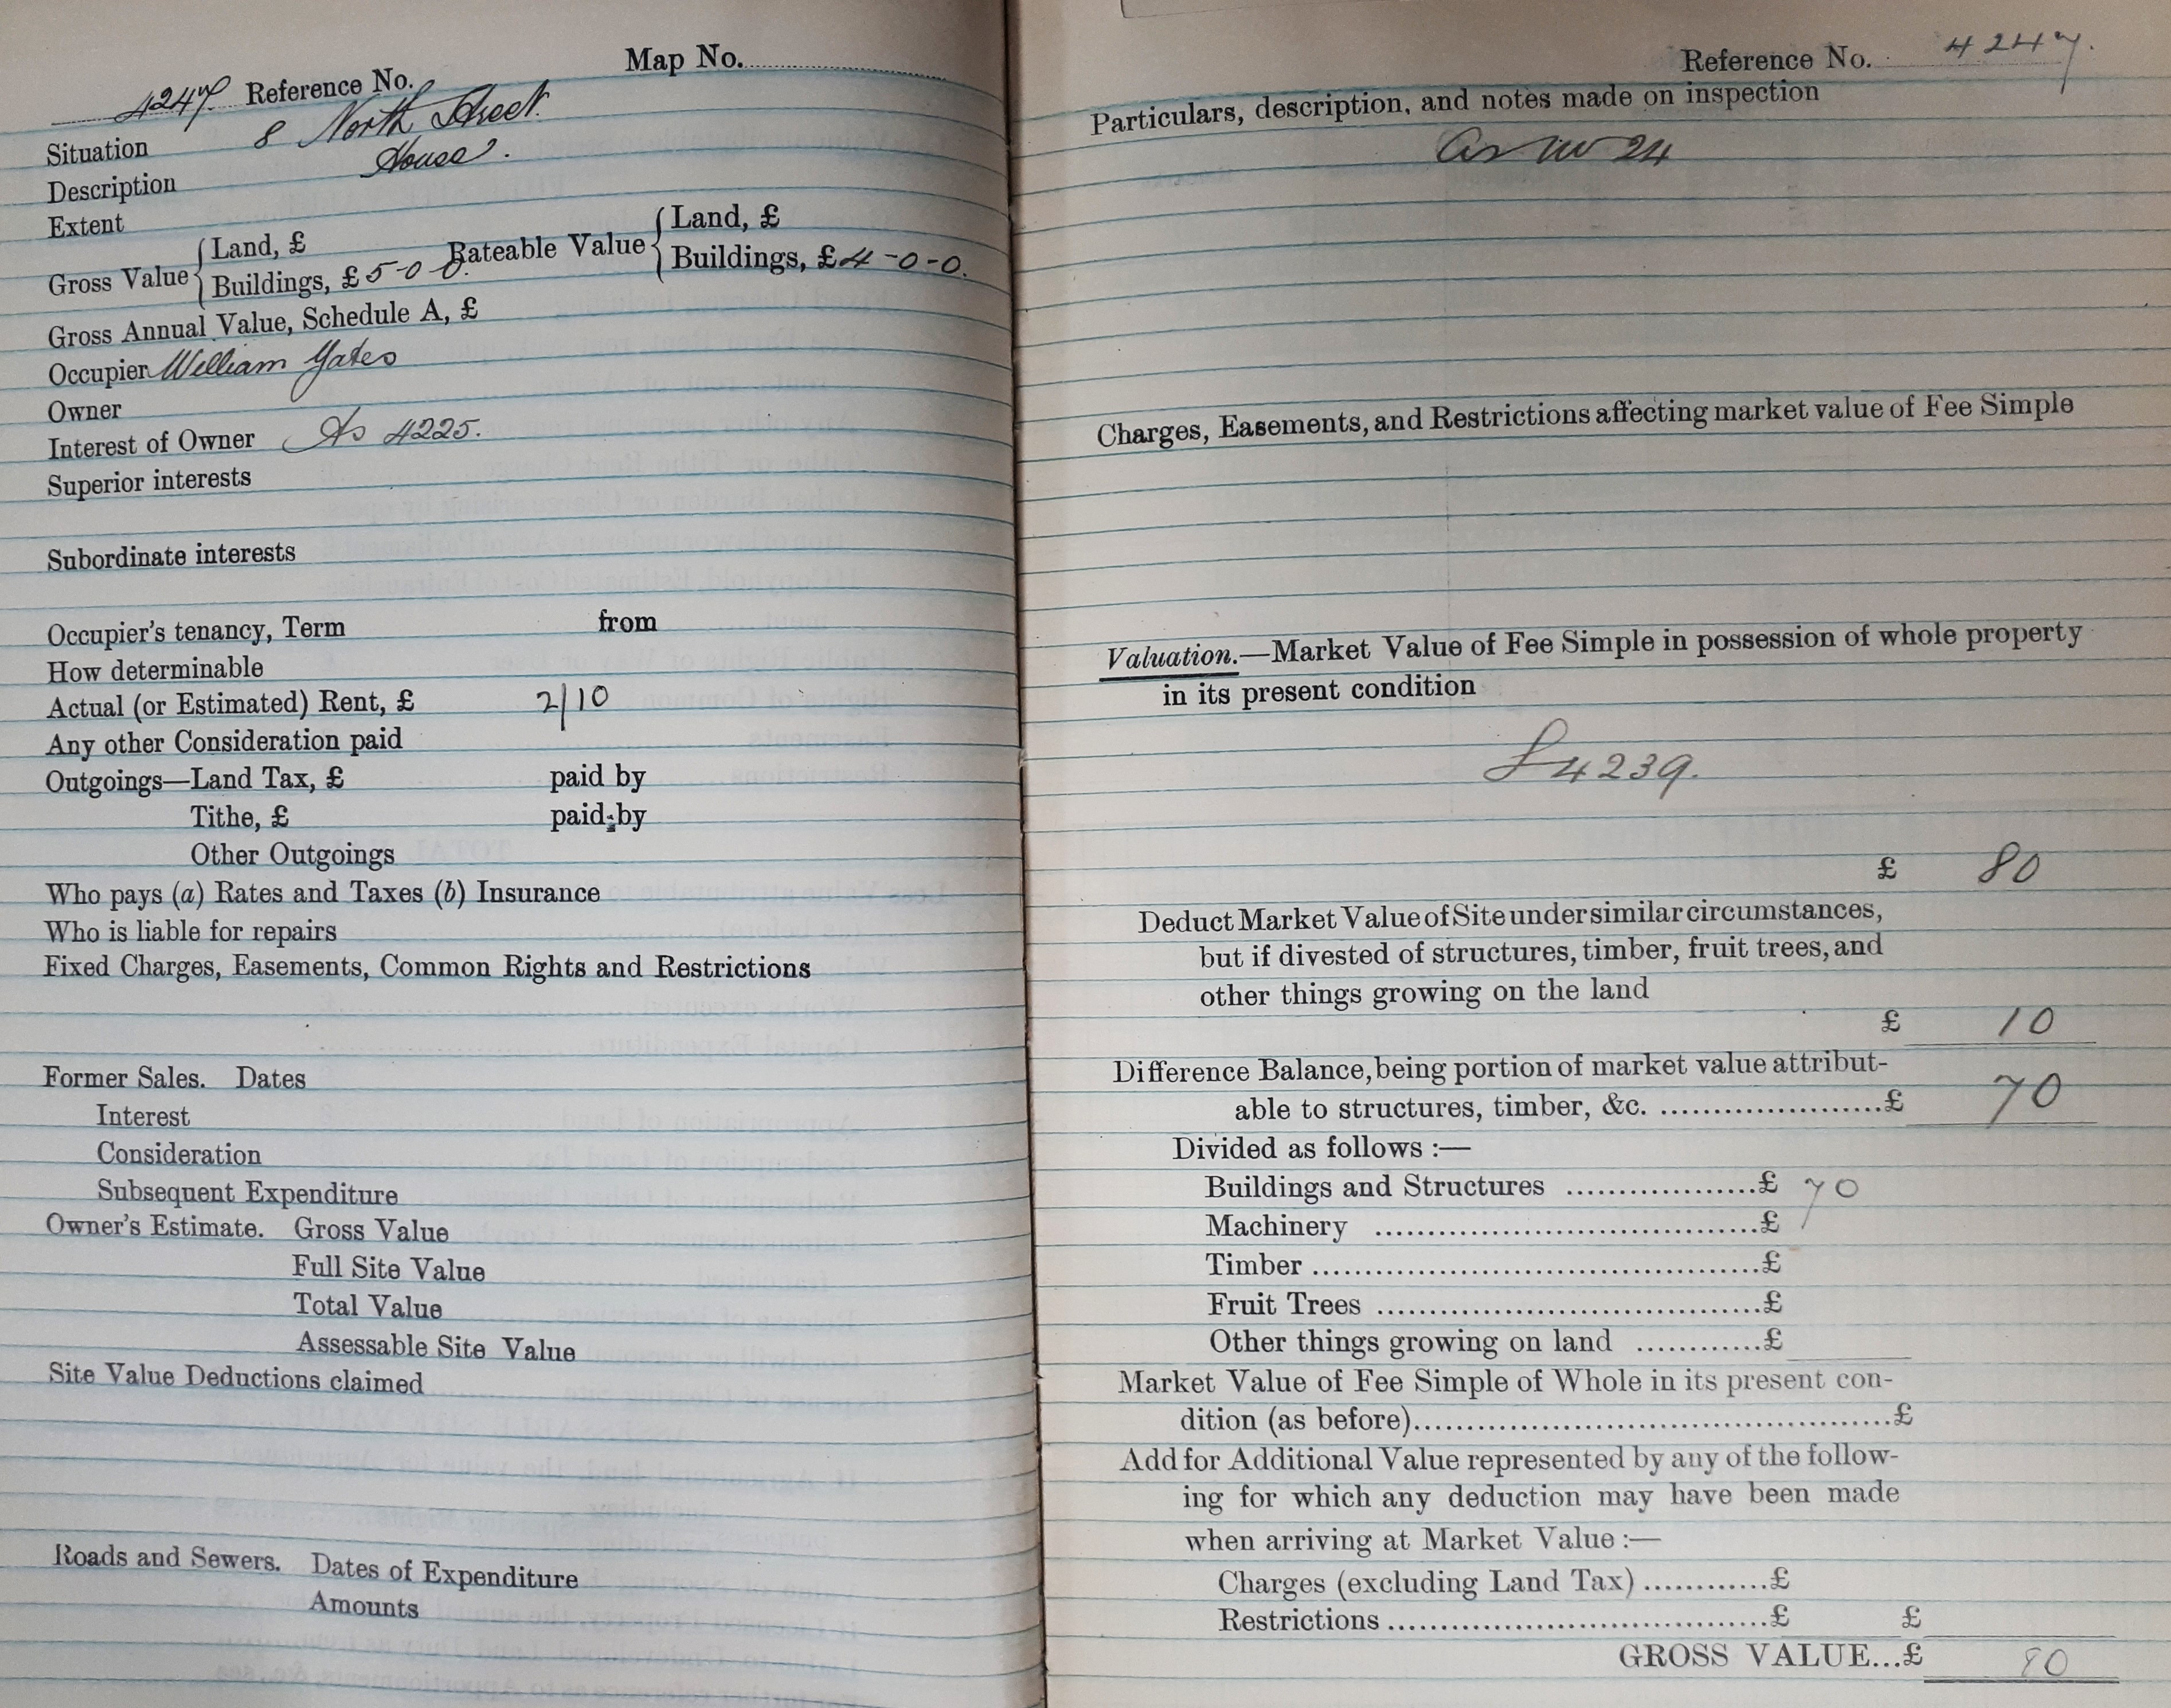 Map No.
4247 Reference No.
Situation 8 North Street.
Description House.
Extent
Gross Value { Land, £ Rateable Value { Land, £
Buildings, £ 5-0-0. Buildings, £ 4-0-0.
Gross Annual Value, Schedule A, £
Occupier William Yates
Owner
Interest of Owner As 4225.
Superior interests
Subordinate interests
Occupier's tenancy, Term from
How determinable
Actual (or Estimated) Rent, £ 2/10
Any other Consideration paid
Outgoings—Land Tax, £ paid by
Tithe, £ paid by
Other Outgoings
Who pays (a) Rates and Taxes (b) Insurance
Who is liable for repairs
Fixed Charges, Easements, Common Rights and Restrictions
Former Sales. Dates
Interest
Consideration
Subsequent Expenditure
Owner's Estimate. Gross Value
Full Site Value
Total Value
Assessable Site Value
Site Value Deductions claimed
Roads and Sewers. Dates of Expenditure
Amounts
Reference No. 4247.
Particulars, description, and notes made on inspection
as 24
Charges, Easements, and Restrictions affecting market value of Fee Simple
Valuation.—Market Value of Fee Simple in possession of whole property
in its present condition
4239.
£ 80
Deduct Market Value of Site under similar circumstances,
but if divested of structures, timber, fruit trees, and
other things growing on the land
£ 10
Difference Balance, being portion of market value attribut-
able to structures, timber, &c. ....................£ 70
Divided as follows :—
Buildings and Structures ..................£ 70
Machinery ....................................£
Timber ..........................................£
Fruit Trees ....................................£
Other things growing on land ............£
Market Value of Fee Simple of Whole in its present con-
dition (as before).............................................£
Add for Additional Value represented by any of the follow-
ing for which any deduction may have been made
when arriving at Market Value :—
Charges (excluding Land Tax) ............£
Restrictions ....................................£ £
GROSS VALUE...£ 80